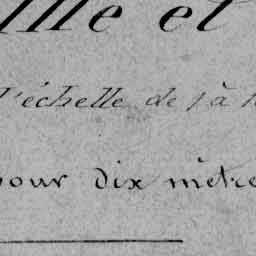 et
l'échelle de 1 à
pour dix mètre